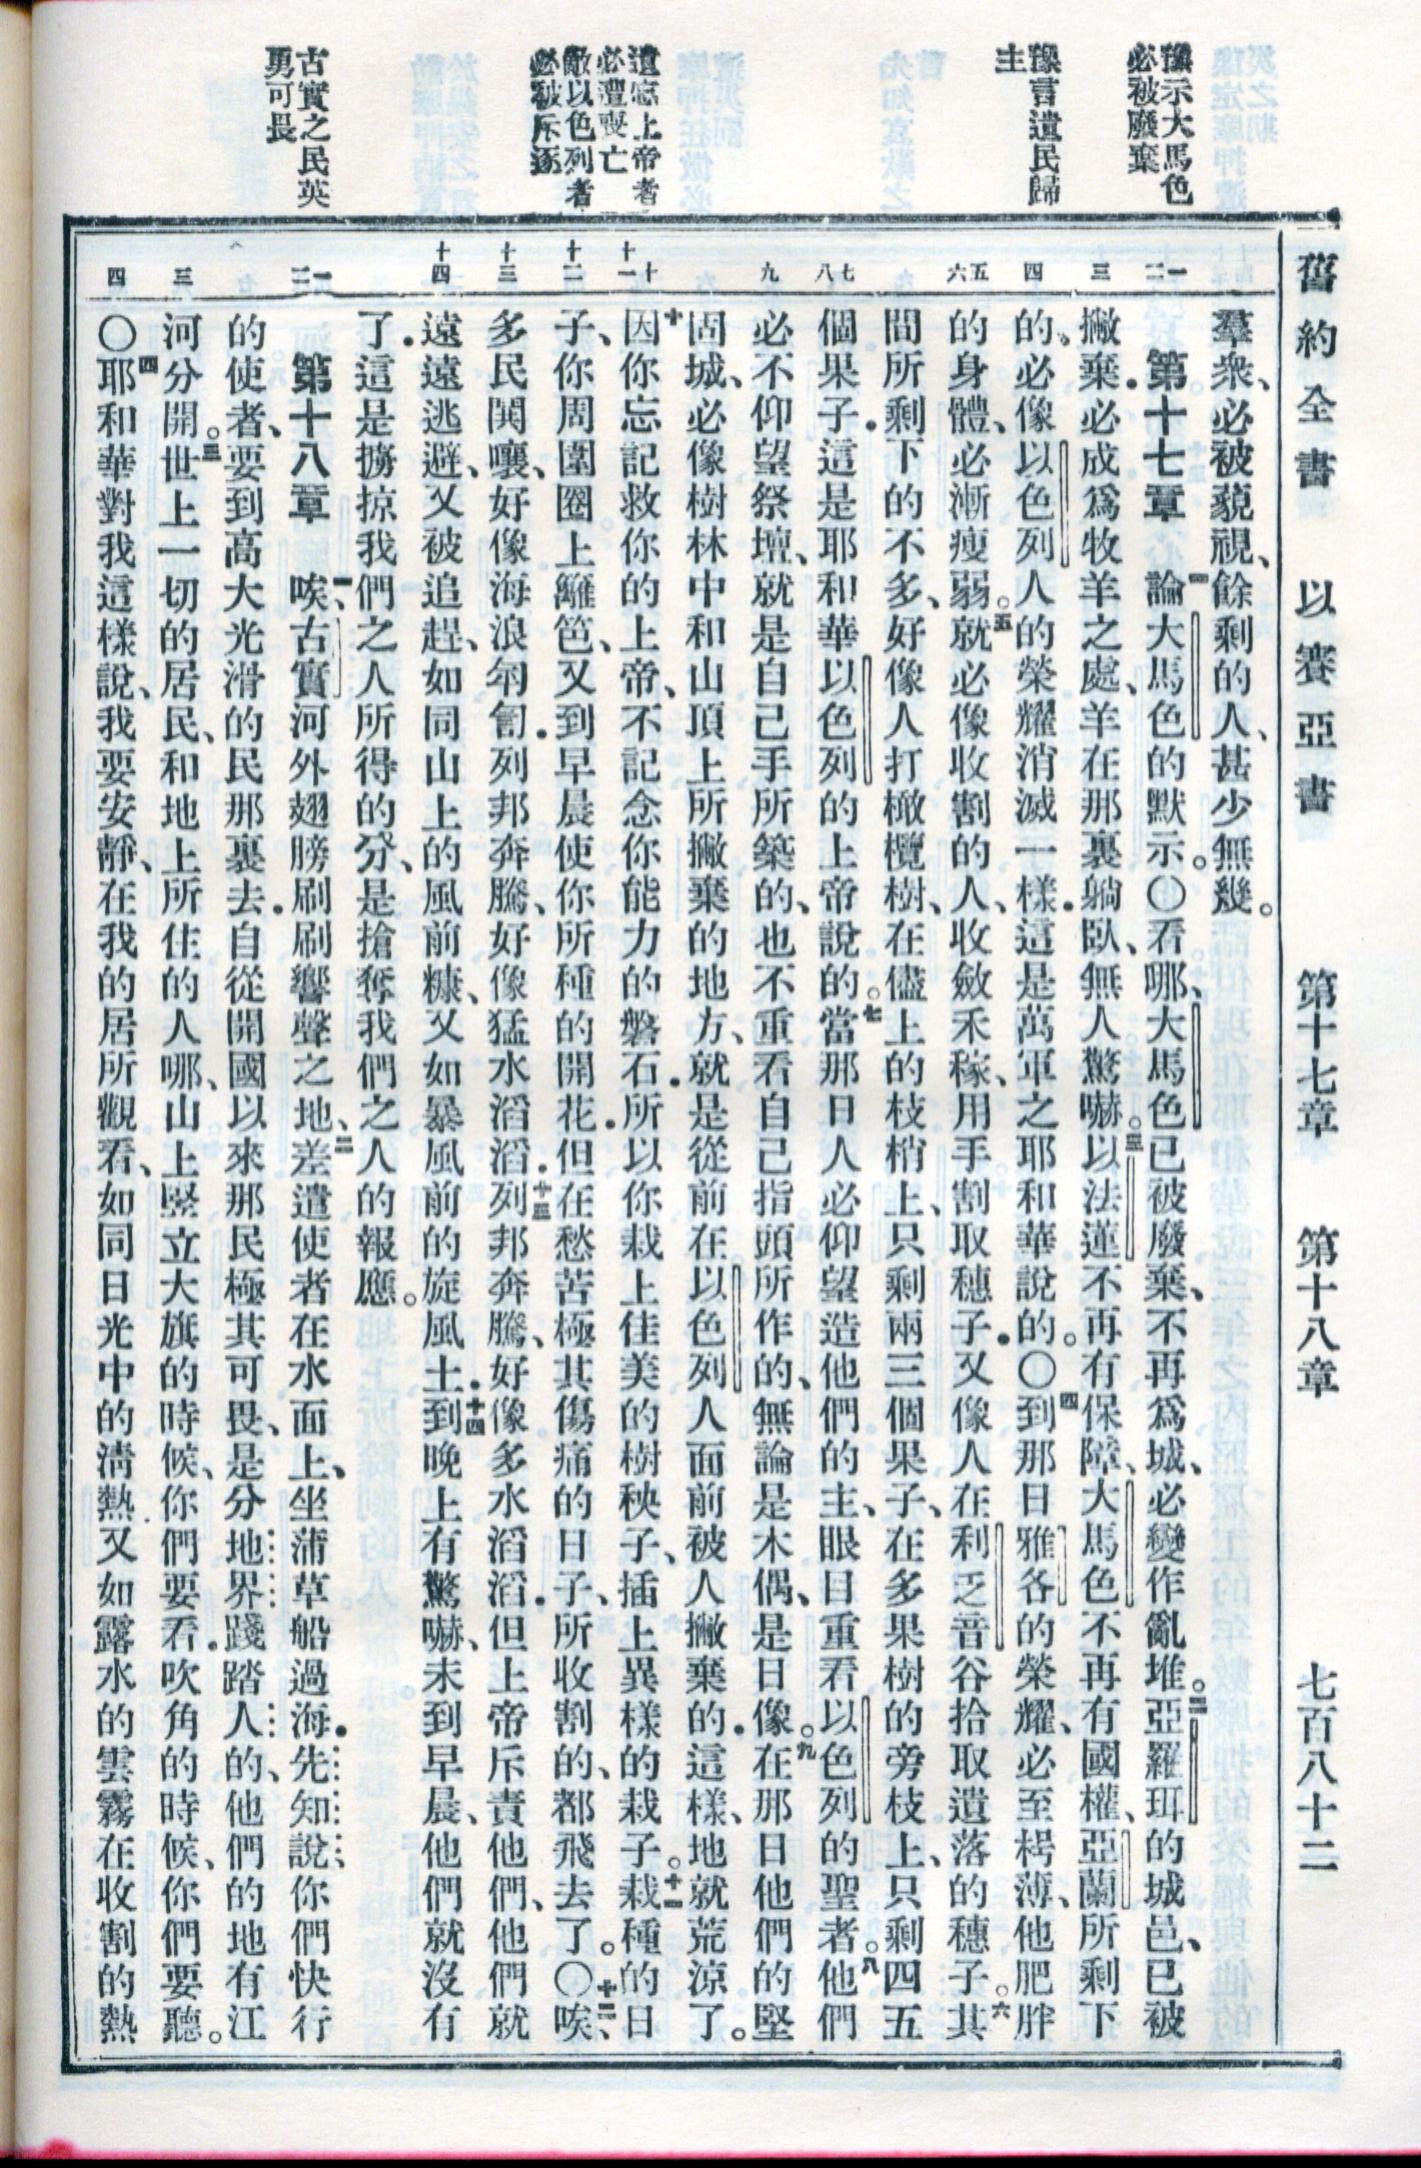 舊約全書 以賽亞書 第十七章 第十八章 七百八十二
豫示大馬色
必被廢棄
豫言遺民歸
主
遺忘上帝者
必遭喪亡
敵以色列者
必被斥逐
古實之民英
勇可畏
羣衆、必被藐視、餘剩的人、甚少無幾。
一二 第十七章 一論大馬色的默示。〇看哪、大馬色已被廢棄、不再爲城、必變作亂堆。二亞羅珥的城邑、已被
三 撇棄．必成爲牧羊之處、羊在那裏躺臥、無人驚嚇。三以法蓮不再有保障、大馬色不再有國權、亞蘭所剩下
四 的、必像以色列人的榮耀消滅一樣．這是萬軍之耶和華說的。〇四到那日雅各的榮耀、必至枵薄、他肥胖
五六 的身體、必漸瘦弱。五就必像收割的人、收斂禾稼、用手割取穗子．又像人在利乏音谷拾取遺落的穗子。六其
間所剩下的不多、好像人打橄欖樹、在儘上的枝梢上、只剩兩三個果子、在多果樹的旁枝上、只剩四五
七八 個果子．這是耶和華以色列的上帝說的。七當那日人必仰望造他們的主、眼目重看以色列的聖者。八他們
九 必不仰望祭壇、就是自己手所築的、也不重看自己指頭所作的、無論是木偶、是日像。九在那日他們的堅
固城、必像樹林中和山頂上所撇棄的地方、就是從前在以色列人面前被人撇棄的．這樣、地就荒涼了。
十十一 十因你忘記救你的上帝、不記念你能力的磐石．所以你栽上佳美的樹秧子、插上異樣的栽子。十一栽種的日
十二 子、你周圍圈上籬笆、又到早晨使你所種的開花．但在愁苦極其傷痛的日子、所收割的、都飛去了。〇十二唉、
十三 多民鬨嚷、好像海浪匉訇．列邦奔騰、好像猛水滔滔．十三列邦奔騰、好像多水滔滔．但上帝斥責他們、他們就
十四 遠遠逃避、又被追趕、如同山上的風前糠、又如暴風前的旋風土．十四到晚上有驚嚇、未到早晨、他們就沒有
了．這是擄掠我們之人所得的分、是搶奪我們之人的報應。
一二 第十八章 一唉、古實河外翅膀刷刷響聲之地、二差遣使者在水面上、坐蒲草船過海．先知說、你們快行
的使者、要到高大光滑的民那裏去．自從開國以來那民極其可畏、是分地界踐踏人的、他們的地有江
三 河分開。三世上一切的居民、和地上所住的人哪、山上豎立大旗的時候、你們要看．吹角的時候、你們要聽。
四 〇四耶和華對我這樣說、我要安靜、在我的居所觀看、如同日光中的清熱又如露水的雲霧在收割的熱